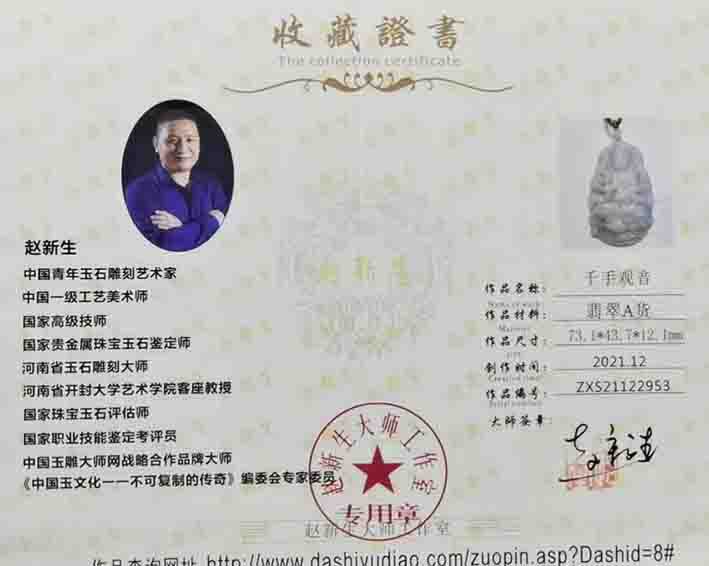 收藏證書
The collection certificate
赵新生
中国青年玉石雕刻艺术家
中国一级工艺美术师
国家高级技师
国家贵金属珠宝玉石鉴定师
河南省玉石雕刻大师
河南省开封大学艺术学院客座教授
国家珠宝玉石评估师
国家职业技能鉴定考评员
中国玉雕大师网战略合作品牌大师
《中国玉文化一一不可复制的传奇》编委会专家委员
作品名称: 千手观音
Name of work:
作品材料: 翡翠A货
Material
作品尺寸: 73.1*43.7*12.1mm
创作时间: 2021.12
Created time:
作品编号: ZXS21122953
大师签章:
赵新生大师工作室
专用章
赵新生大师工作室
作品查询网址 http://www.dashiyudiao.com/zuopin.asp?Dashid=8#